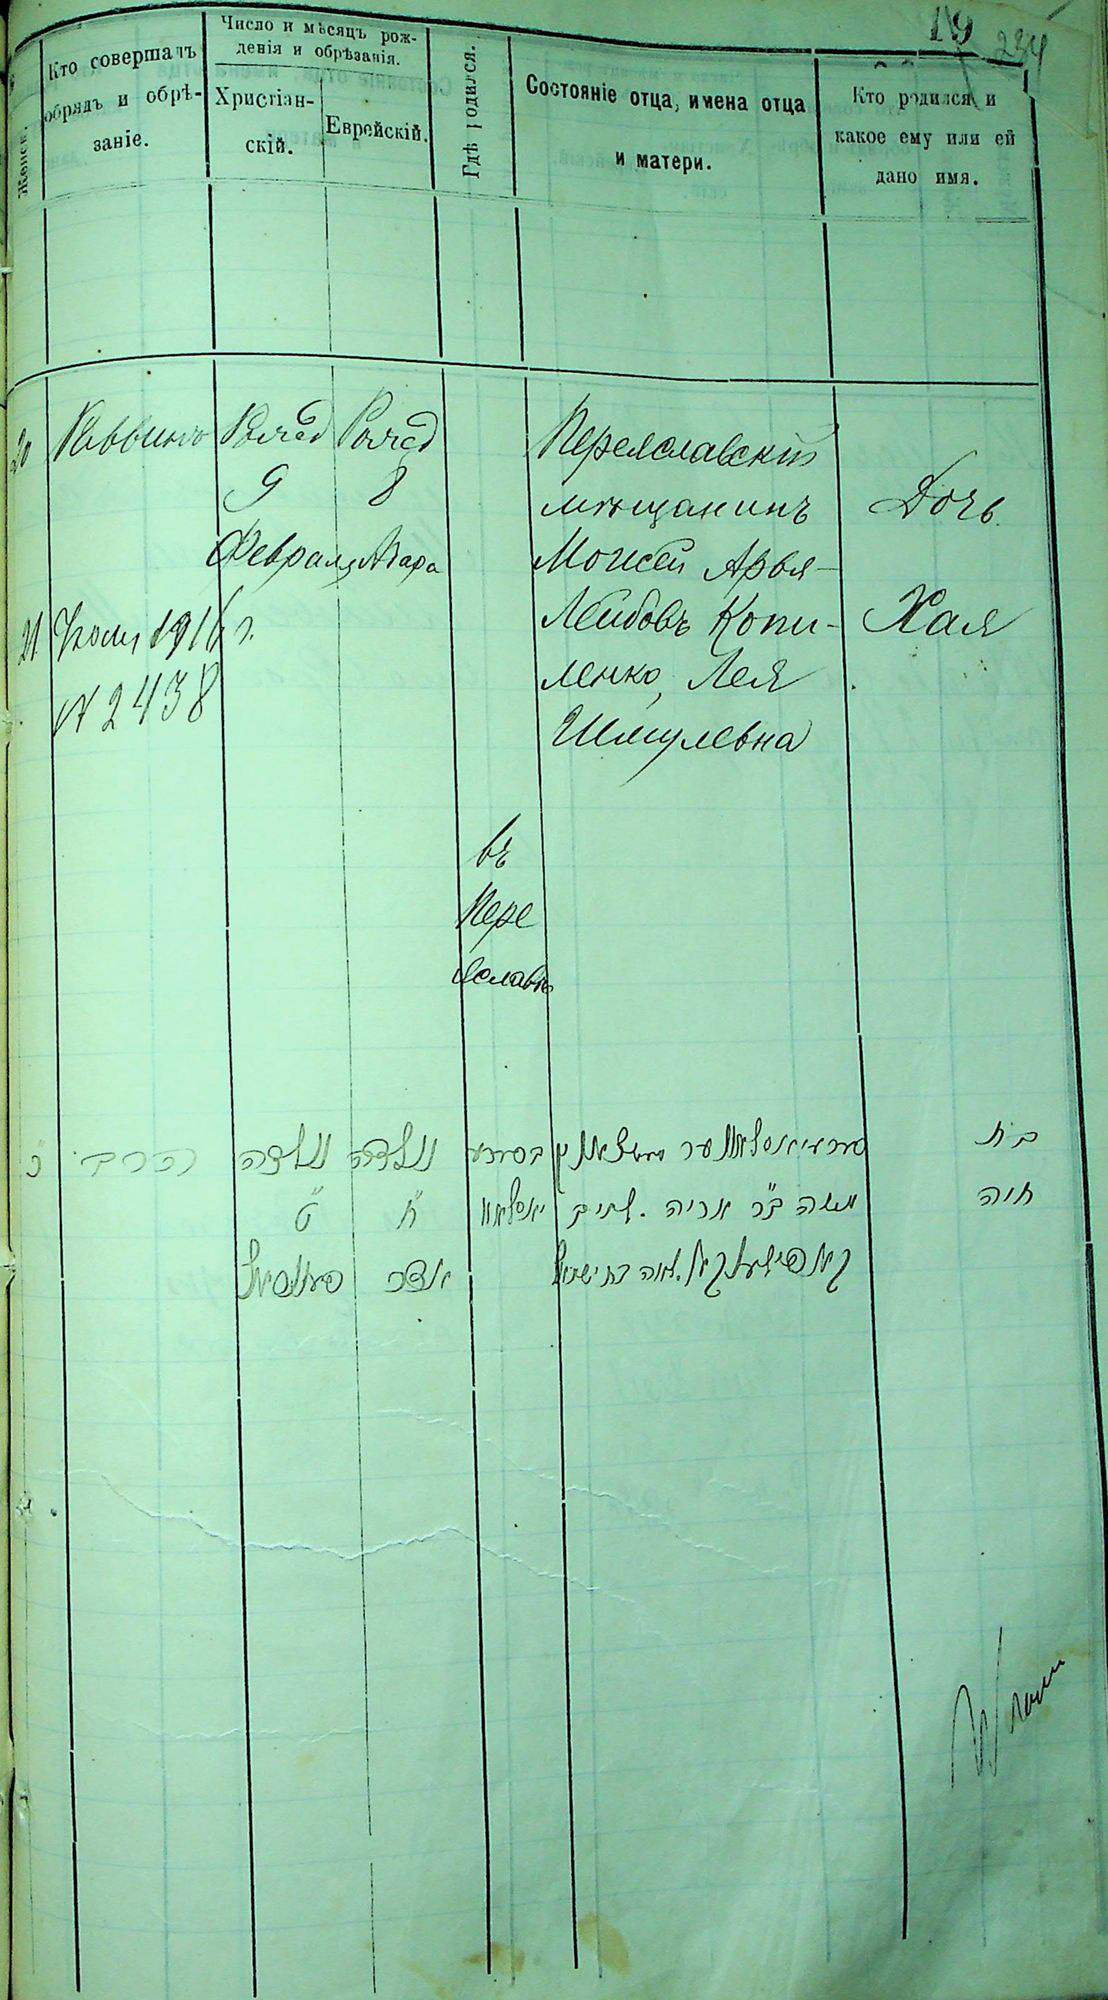 19
234
Женск.
Кто совершалъ
обрядъ и обрѣ-
заніе.
Число и мѣсяцъ рож-
денія и обрѣзанія.
Христіан-
скій.
Еврейскій.
Гдѣ родился.
Состояніе отца, имена отца
и матери.
Кто родился и
какое ему или ей
дано имя.
20 Раввинъ
21 Іюля 1916 г.
№ 2438
9
Февраля
8
Адара
въ
Пере
яславѣ
Переяславскій
мѣщанинъ
Моисей Арья-
Лейбовъ Копи-
ленко, Лея
Шмулевна
Дочь
Хая
כ
הרב
נולדה
ט
נולדה
ח
אדר
משה ב"ר אריה
בת
חיה